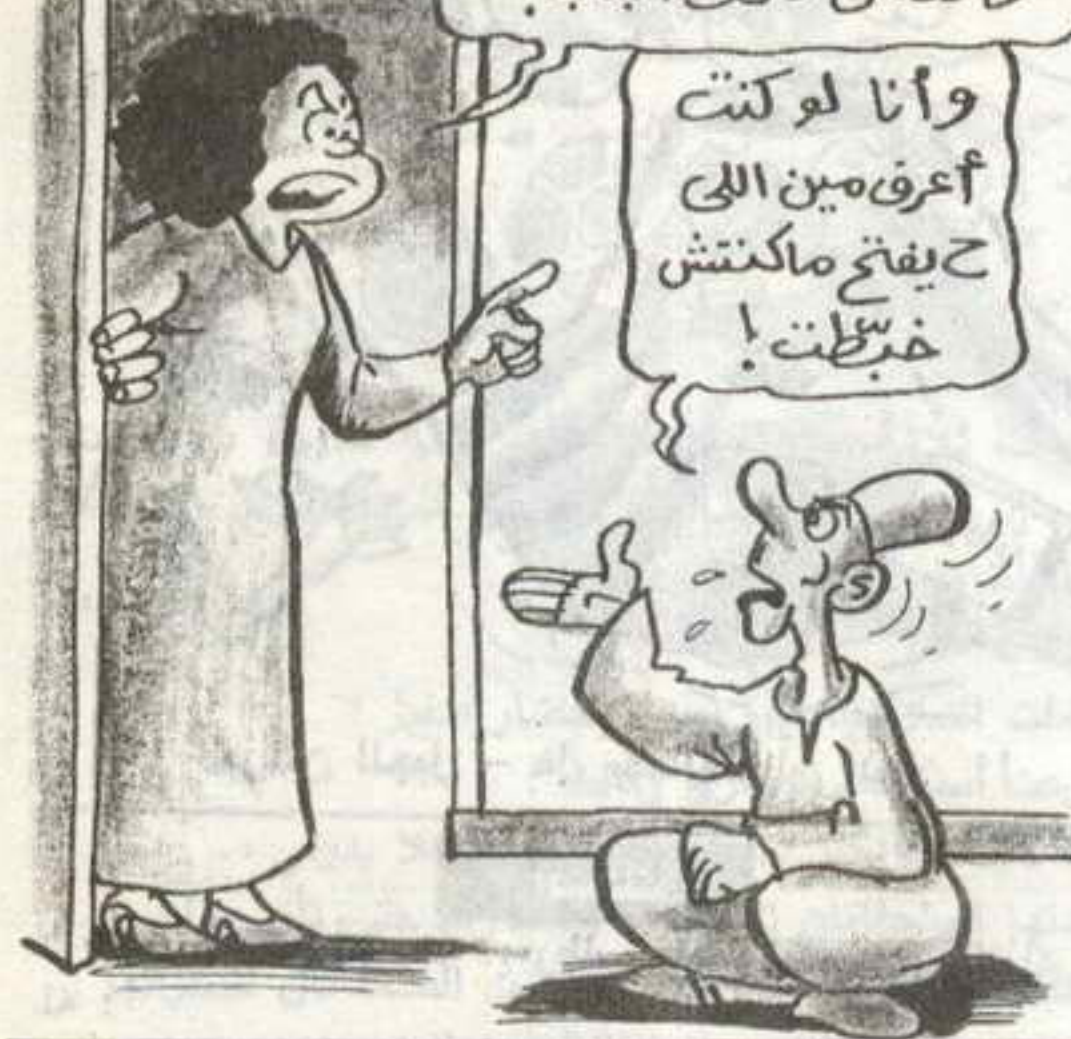 وأنا لو كنت
أعرف مين اللى
ح يفتح ماكنتش
خبّطت !